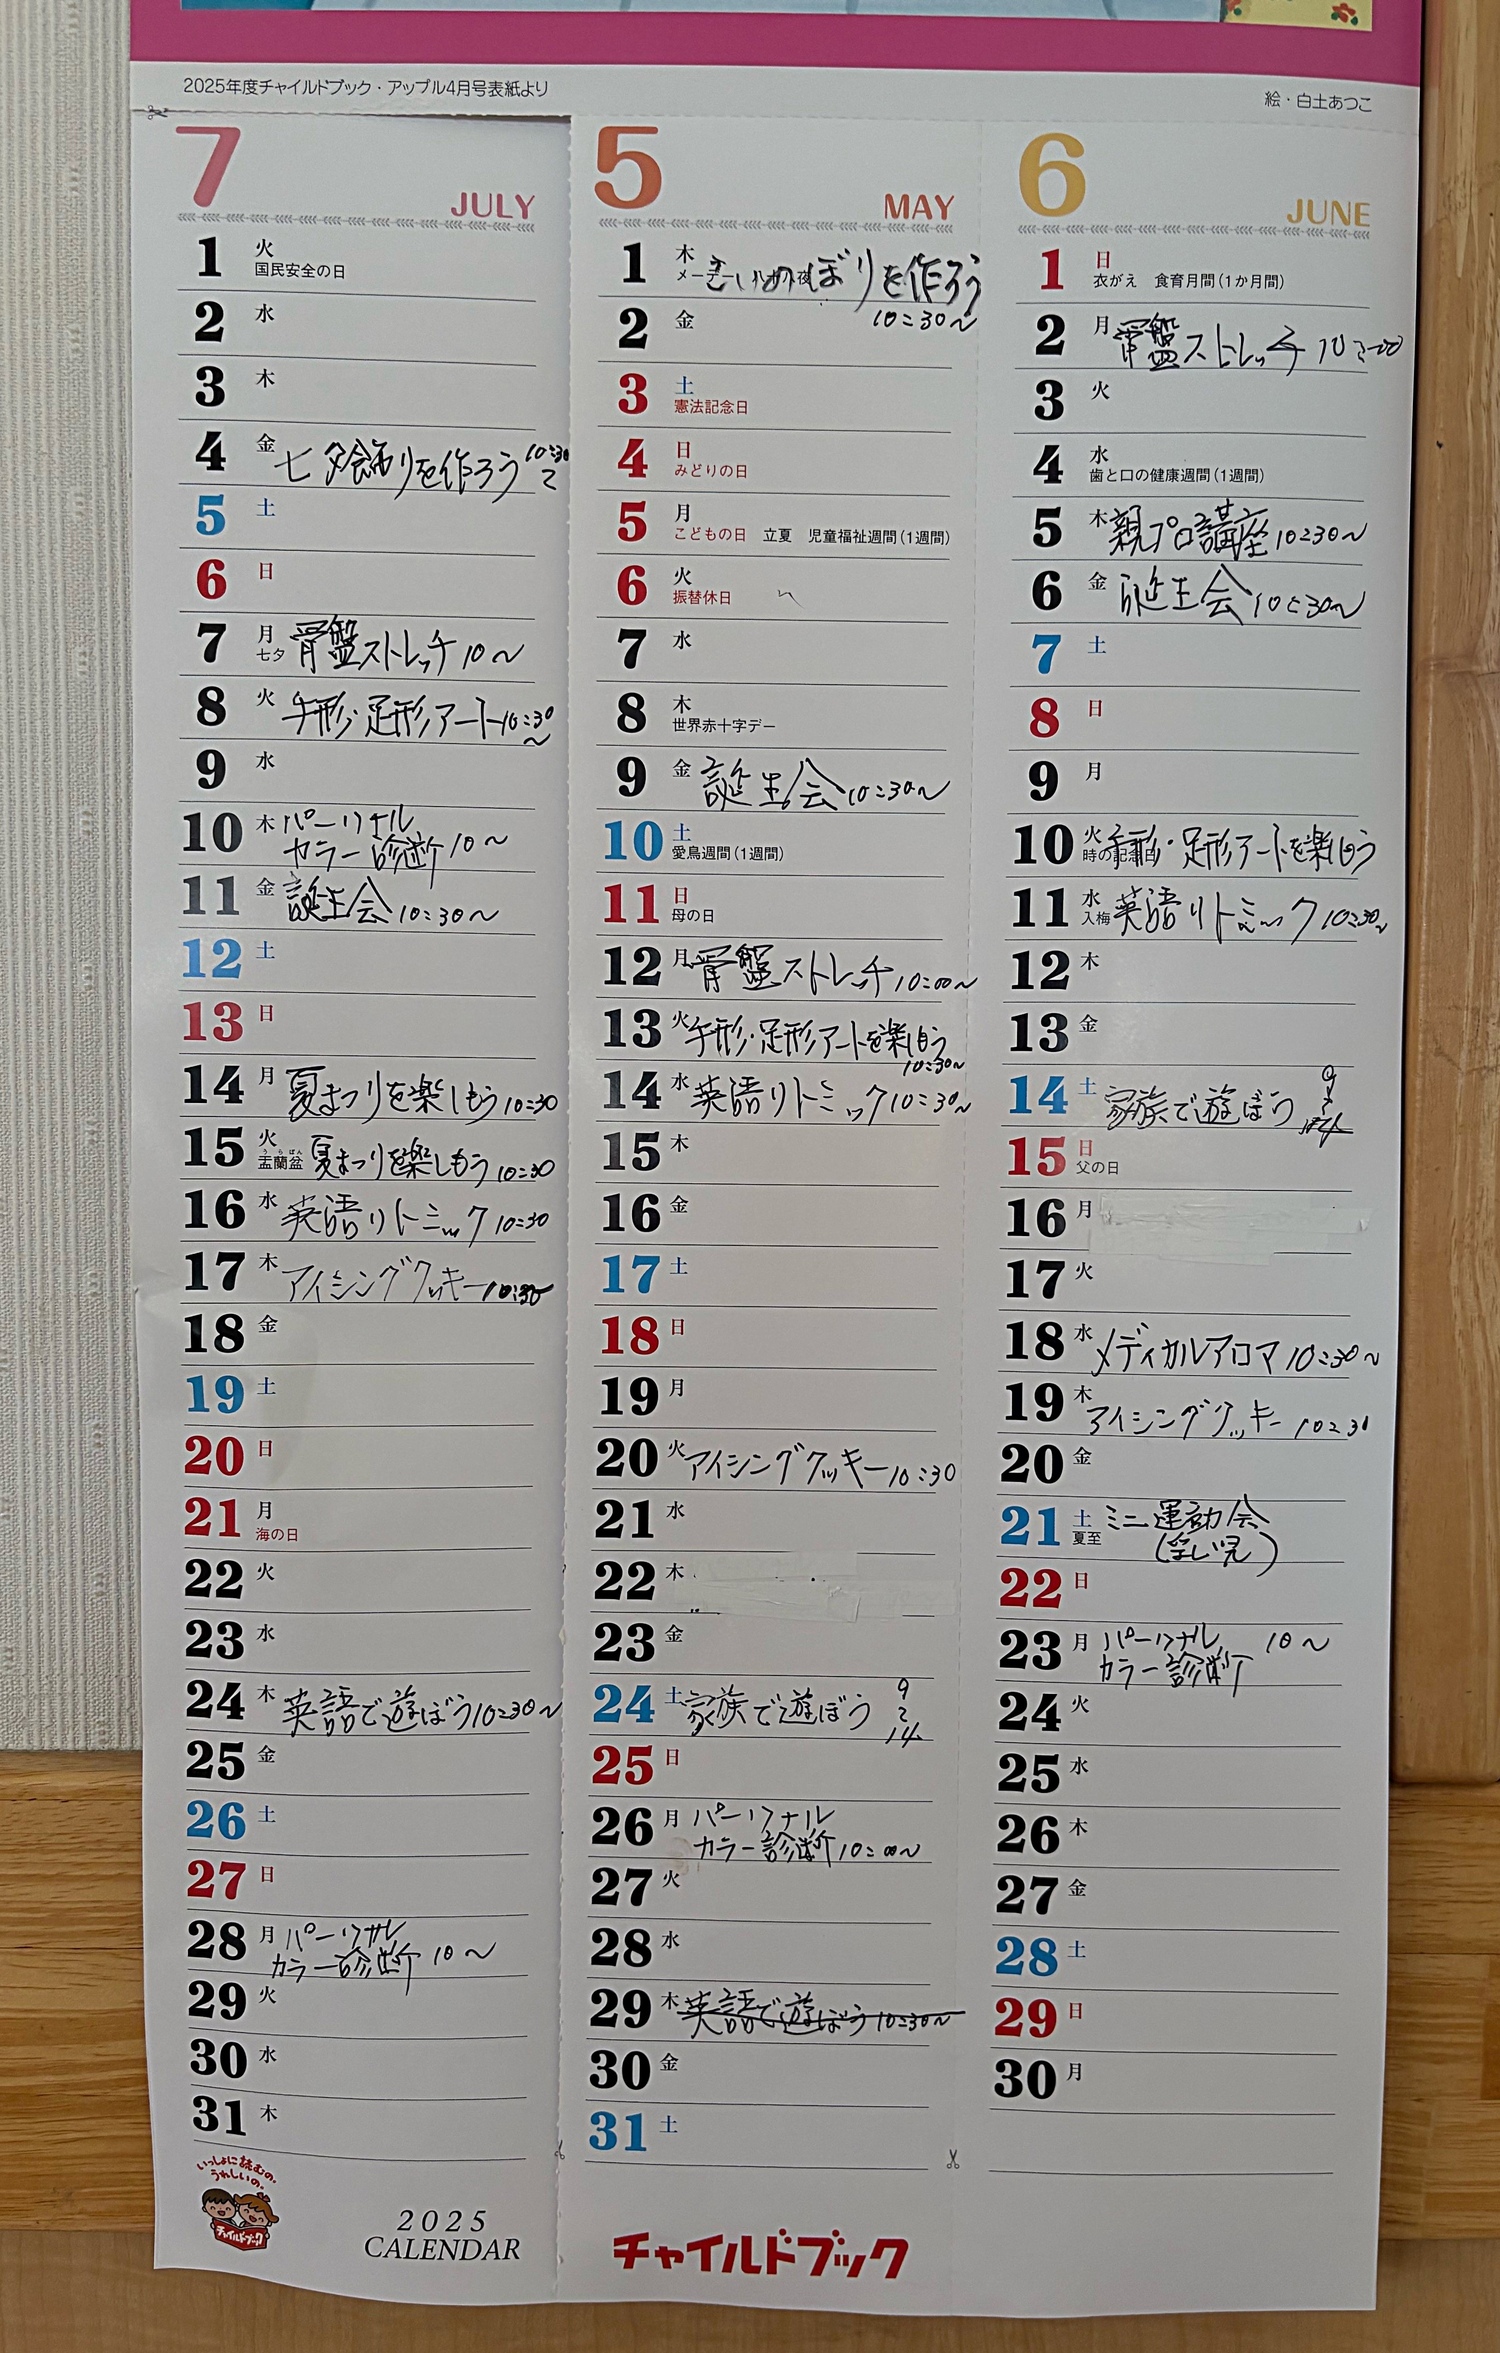 2025年度チャイルドブック・アップル4月号表紙より
絵・白土あつこ
7
JULY
1 火
国民安全の日
2 水
3 木
4 金 七夕飾りを作ろう 10:30
〜
5 土
6 日
7 月 骨盤ストレッチ 10〜
七夕
8 火 手形・足形アート 10:30
〜
9 水
10 木 パーソナル
カラー診断 10〜
11 金 誕生会 10:30〜
12 土
13 日
14 月 夏まつりを楽しもう 10:30
15 火 夏まつりを楽しもう 10:30
盂蘭盆
うらぼん
16 水 英語リトミック 10:30
17 木 アイシングクッキー 10:30
18 金
19 土
20 日
21 月
海の日
22 火
23 水
24 木 英語で遊ぼう 10:30〜
25 金
26 土
27 日
28 月 パーソナル
カラー診断 10〜
29 火
30 水
31 木
いっしょに読むの。
うれしいの。
チャイルドブック
2025
CALENDAR
5
MAY
1 木
メーデー ぼりを作ろう
10:30〜
2 金
3 土
憲法記念日
4 日
みどりの日
5 月
こどもの日 立夏 児童福祉週間(1週間)
6 火
振替休日
7 水
8 木
世界赤十字デー
9 金 誕生会 10:30〜
10 土
愛鳥週間(1週間)
11 日
母の日
12 月 骨盤ストレッチ 10:00〜
13 火 手形・足形アートを楽しもう
10:30〜
14 水 英語リトミック 10:30〜
15 木
16 金
17 土
18 日
19 月
20 火 アイシングクッキー 10:30
21 水
22 木
23 金
24 土 家族で遊ぼう 9
〜
14
25 日
26 月 パーソナル
カラー診断 10:00〜
27 火
28 水
29 木 英語で遊ぼう 10:30〜
30 金
31 土
チャイルドブック
6
JUNE
1 日
衣がえ 食育月間(1か月間)
2 月 骨盤ストレッチ 10:00
3 火
4 水
歯と口の健康週間(1週間)
5 木 親プロ講座 10:30〜
6 金 誕生会 10:30〜
7 土
8 日
9 月
10 火 手形・足形アートを楽しもう
時の記念日
11 水 英語リトミック 10:30〜
入梅
12 木
13 金
14 土 家族で遊ぼう 9
〜
15 日
父の日
16 月
17 火
18 水 メディカルアロマ 10:30〜
19 木 アイシングクッキー 10:30
20 金
21 土 ミニ運動会
夏至
22 日
23 月 パーソナル 10〜
カラー診断
24 火
25 水
26 木
27 金
28 土
29 日
30 月